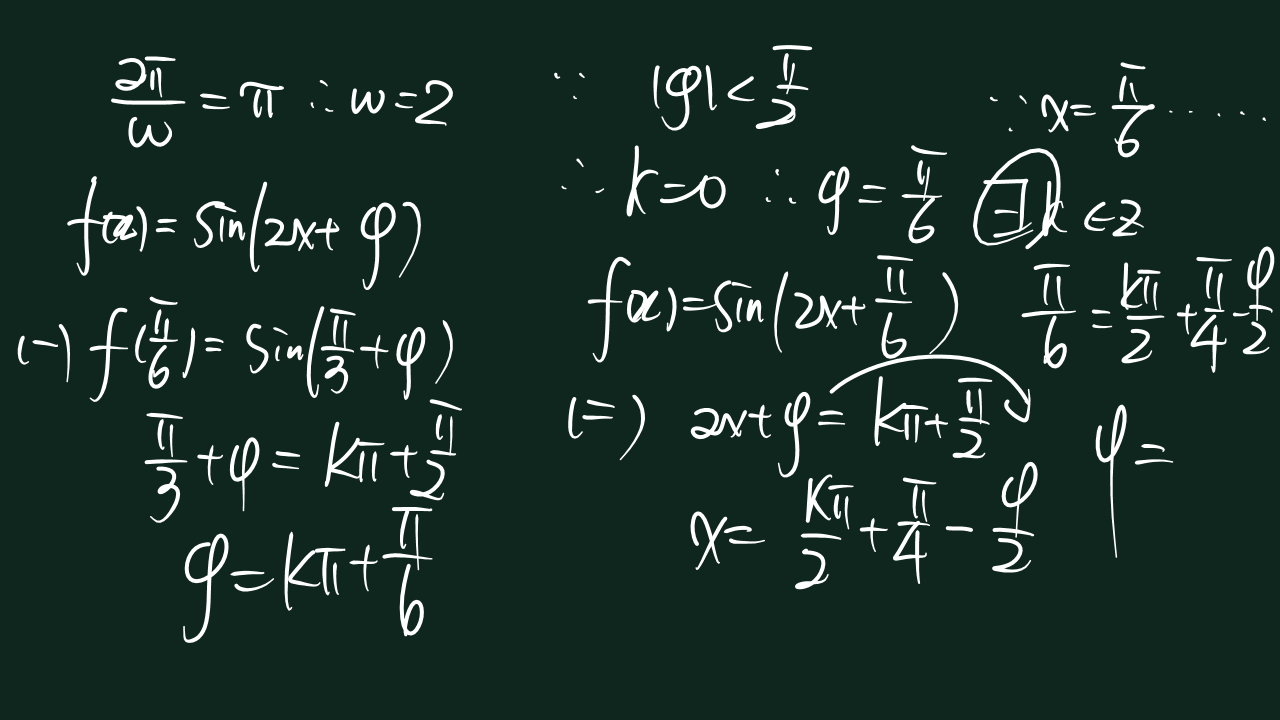 2π/ω = π ∴ w = 2
f(x) = sin(2x + φ)
(一) f(π/6) = sin(π/3 + φ)
π/3 + φ = kπ + π/2
φ = kπ + π/6
∵ |φ| < π/2
∴ k = 0 ∴ φ = π/6
f(x) = sin(2x + π/6)
(二) 2x + φ = kπ + π/2
x = kπ/2 + π/4 - φ/2
∵ x = π/6 ......
∃k ∈ z
π/6 = kπ/2 + π/4 - φ/2
φ =